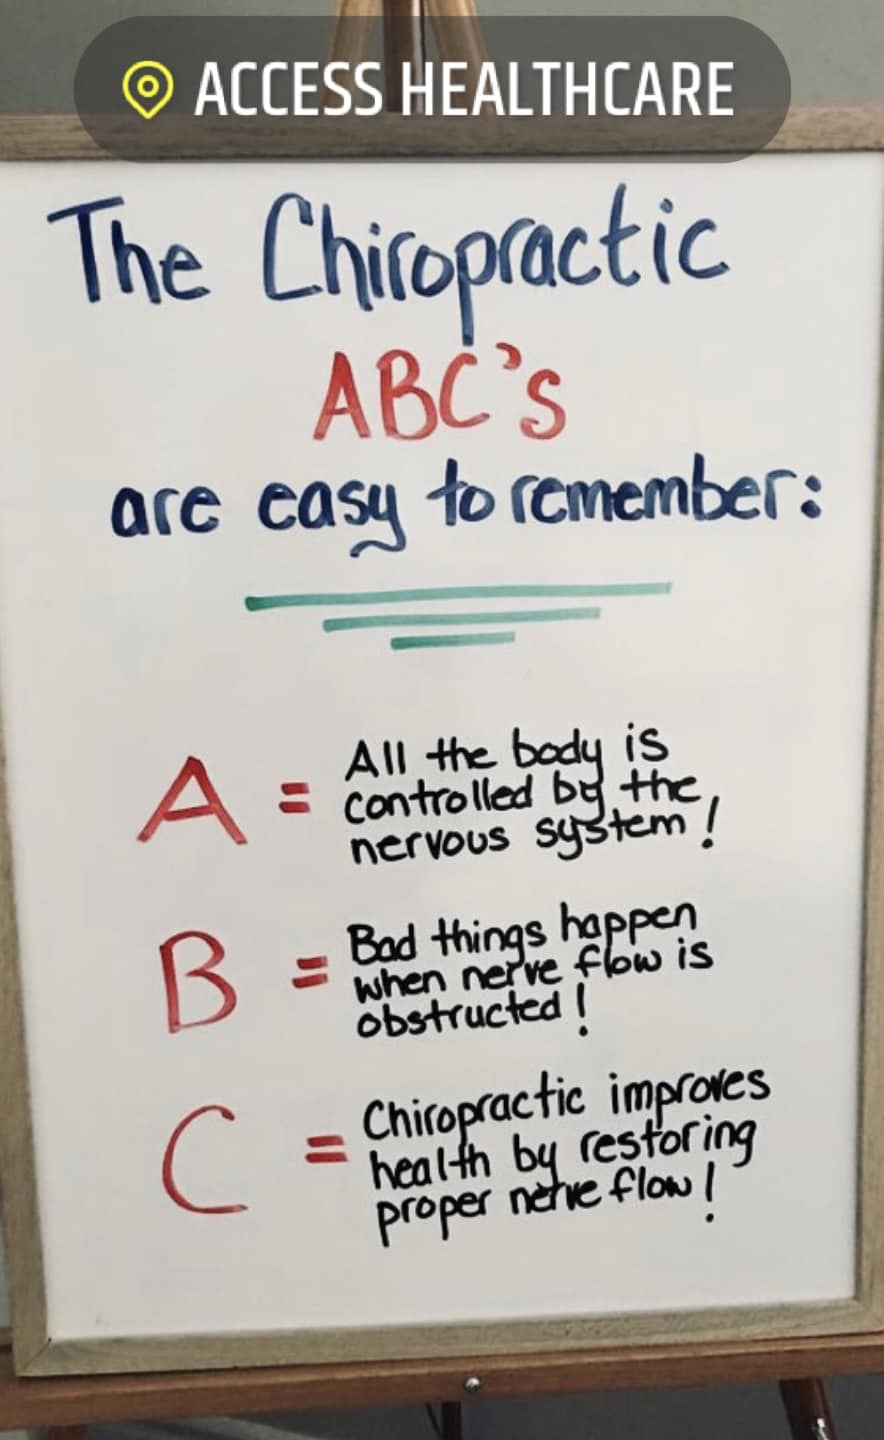 ACCESS HEALTHCARE
The Chiropractic
ABC's
are easy to remember:
A = All the body is
controlled by the
nervous system!
B = Bad things happen
when nerve flow is
obstructed!
C = Chiropractic improves
health by restoring
proper nerve flow!